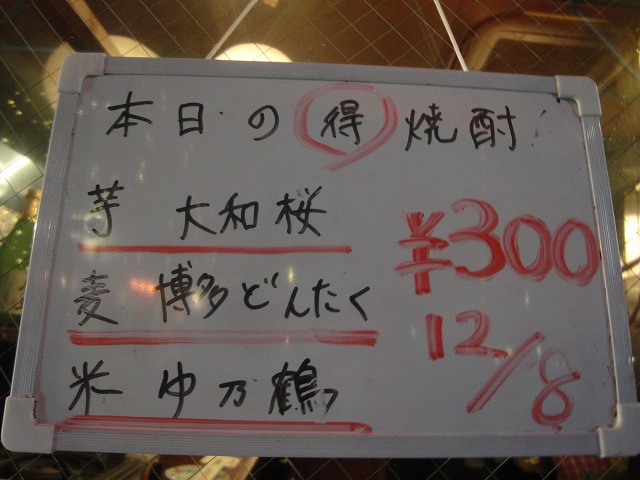 本日の得焼酎
芋 大和桜
麦 博多どんたく
米 ゆ乃鶴
¥300
12/8